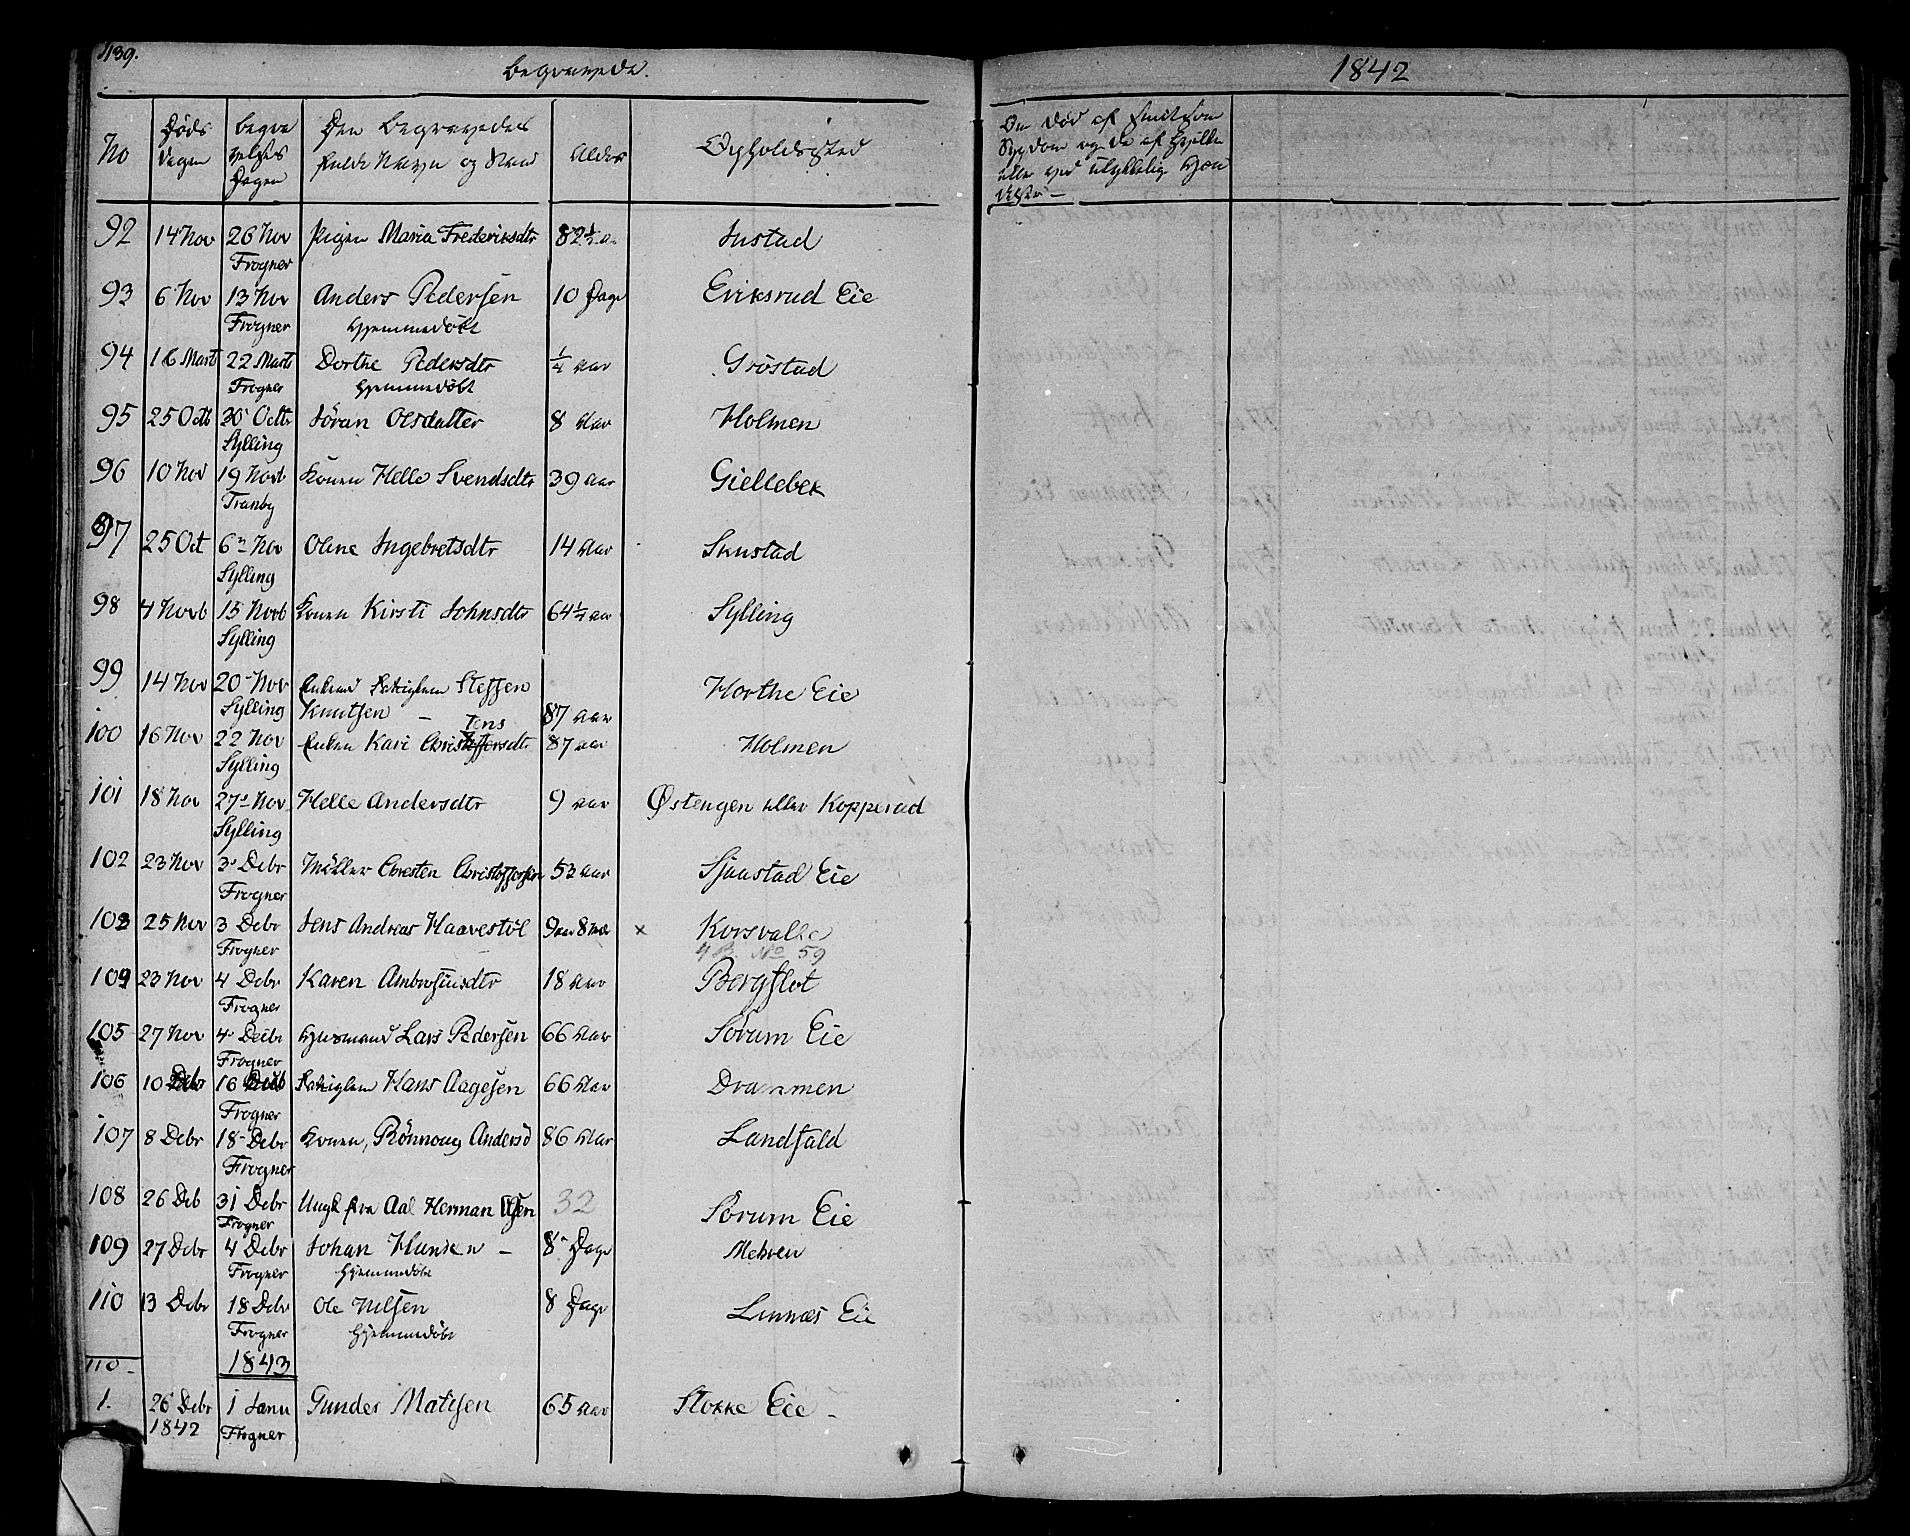 439.
Begravede.
1842
No
Døds
dagen
Begra
velses
Dagen
Den Begravedes
fulde Navn og Stand
Alder
Opholdssted
Om død af smitsom
Sygdom og da af hvilken
eller ved ulykkelig Hæn
delse —
92 14 Nov 26 Nov Pigen Maria Frederiksdtr 82½ aar Justad
Frogner
93 6 Nov 13 Nov Anders Pedersen 10 Dage Eriksrud Eie
Frogner Hjemmedøbt
94 16 Mart 22 Marts Dorthe Pedersdtr ¼ aar Grøstad
Frogner Hjemmedøbt
95 25 Octb 30 Octbr Jöran Olsdatter 8 Aar Holmen
Sylling
96 10 Nov 19 Novb Konen Helle Svendsdtr 39 aar Gjellebek
Tranby
97 25 Oct 6 Nov Oline Ingebretsdtr 14 Aar Skustad
Sylling
98 4 Novb 13 Novb Konen Kirsti Johnsdtr 64½ aar Sylling
Sylling
99 14 Nov 20 Nov Enkemd Fattiglem Steffen Horthe Eie
Sylling Knutsen — 87 aar
Jens
100 16 Nov 22 Nov Enken Kari Christoffersdtr 87 aar Holmen
Sylling
101 18 Nov 27 Nov Helle Andersdtr 9 aar Østengen eller Kopperud
Sylling
102 23 Nov 3 Debr Møller Chresten Christoffersen 53 aar Sjaastad Eie
Frogner
103 25 Nov 3 Debr Jens Andreas Haavestöl 9 aar 8 mdr × Korsvalle
Frogner No 59
104 23 Nov 4 Debr Karen Ambrosiusdtr 18 aar Bergflot
Frogner
105 27 Nov 4 Decbr Husmand Lars Pedersen 66 Aar Sørum Eie
Frogner
106 10 Debr 16 Debr Fattiglem Hans Aagesen 66 Aar Drammen
Frogner
107 8 Debr 18 Debr Konen, Rönnoug Andersd 86 Aar Landfald
Frogner
108 26 Deb 31 Debr Ungk fra Aal Herman Olsen 32 Sørum Eie
Frogner
109 27 Debr 4 Debr Johan Hansen — 8 Dage Mehren
Frogner Hjemmedøbt
110 13 Debr 18 Debr Ole Nilsen 8 Dage Linnæs Eie
Frogner Hjemmedøbt
110 1843
1. 26 Debr 1 Janu Gunder Matisen 65 aar Stokke Eie –
1842 Frogner